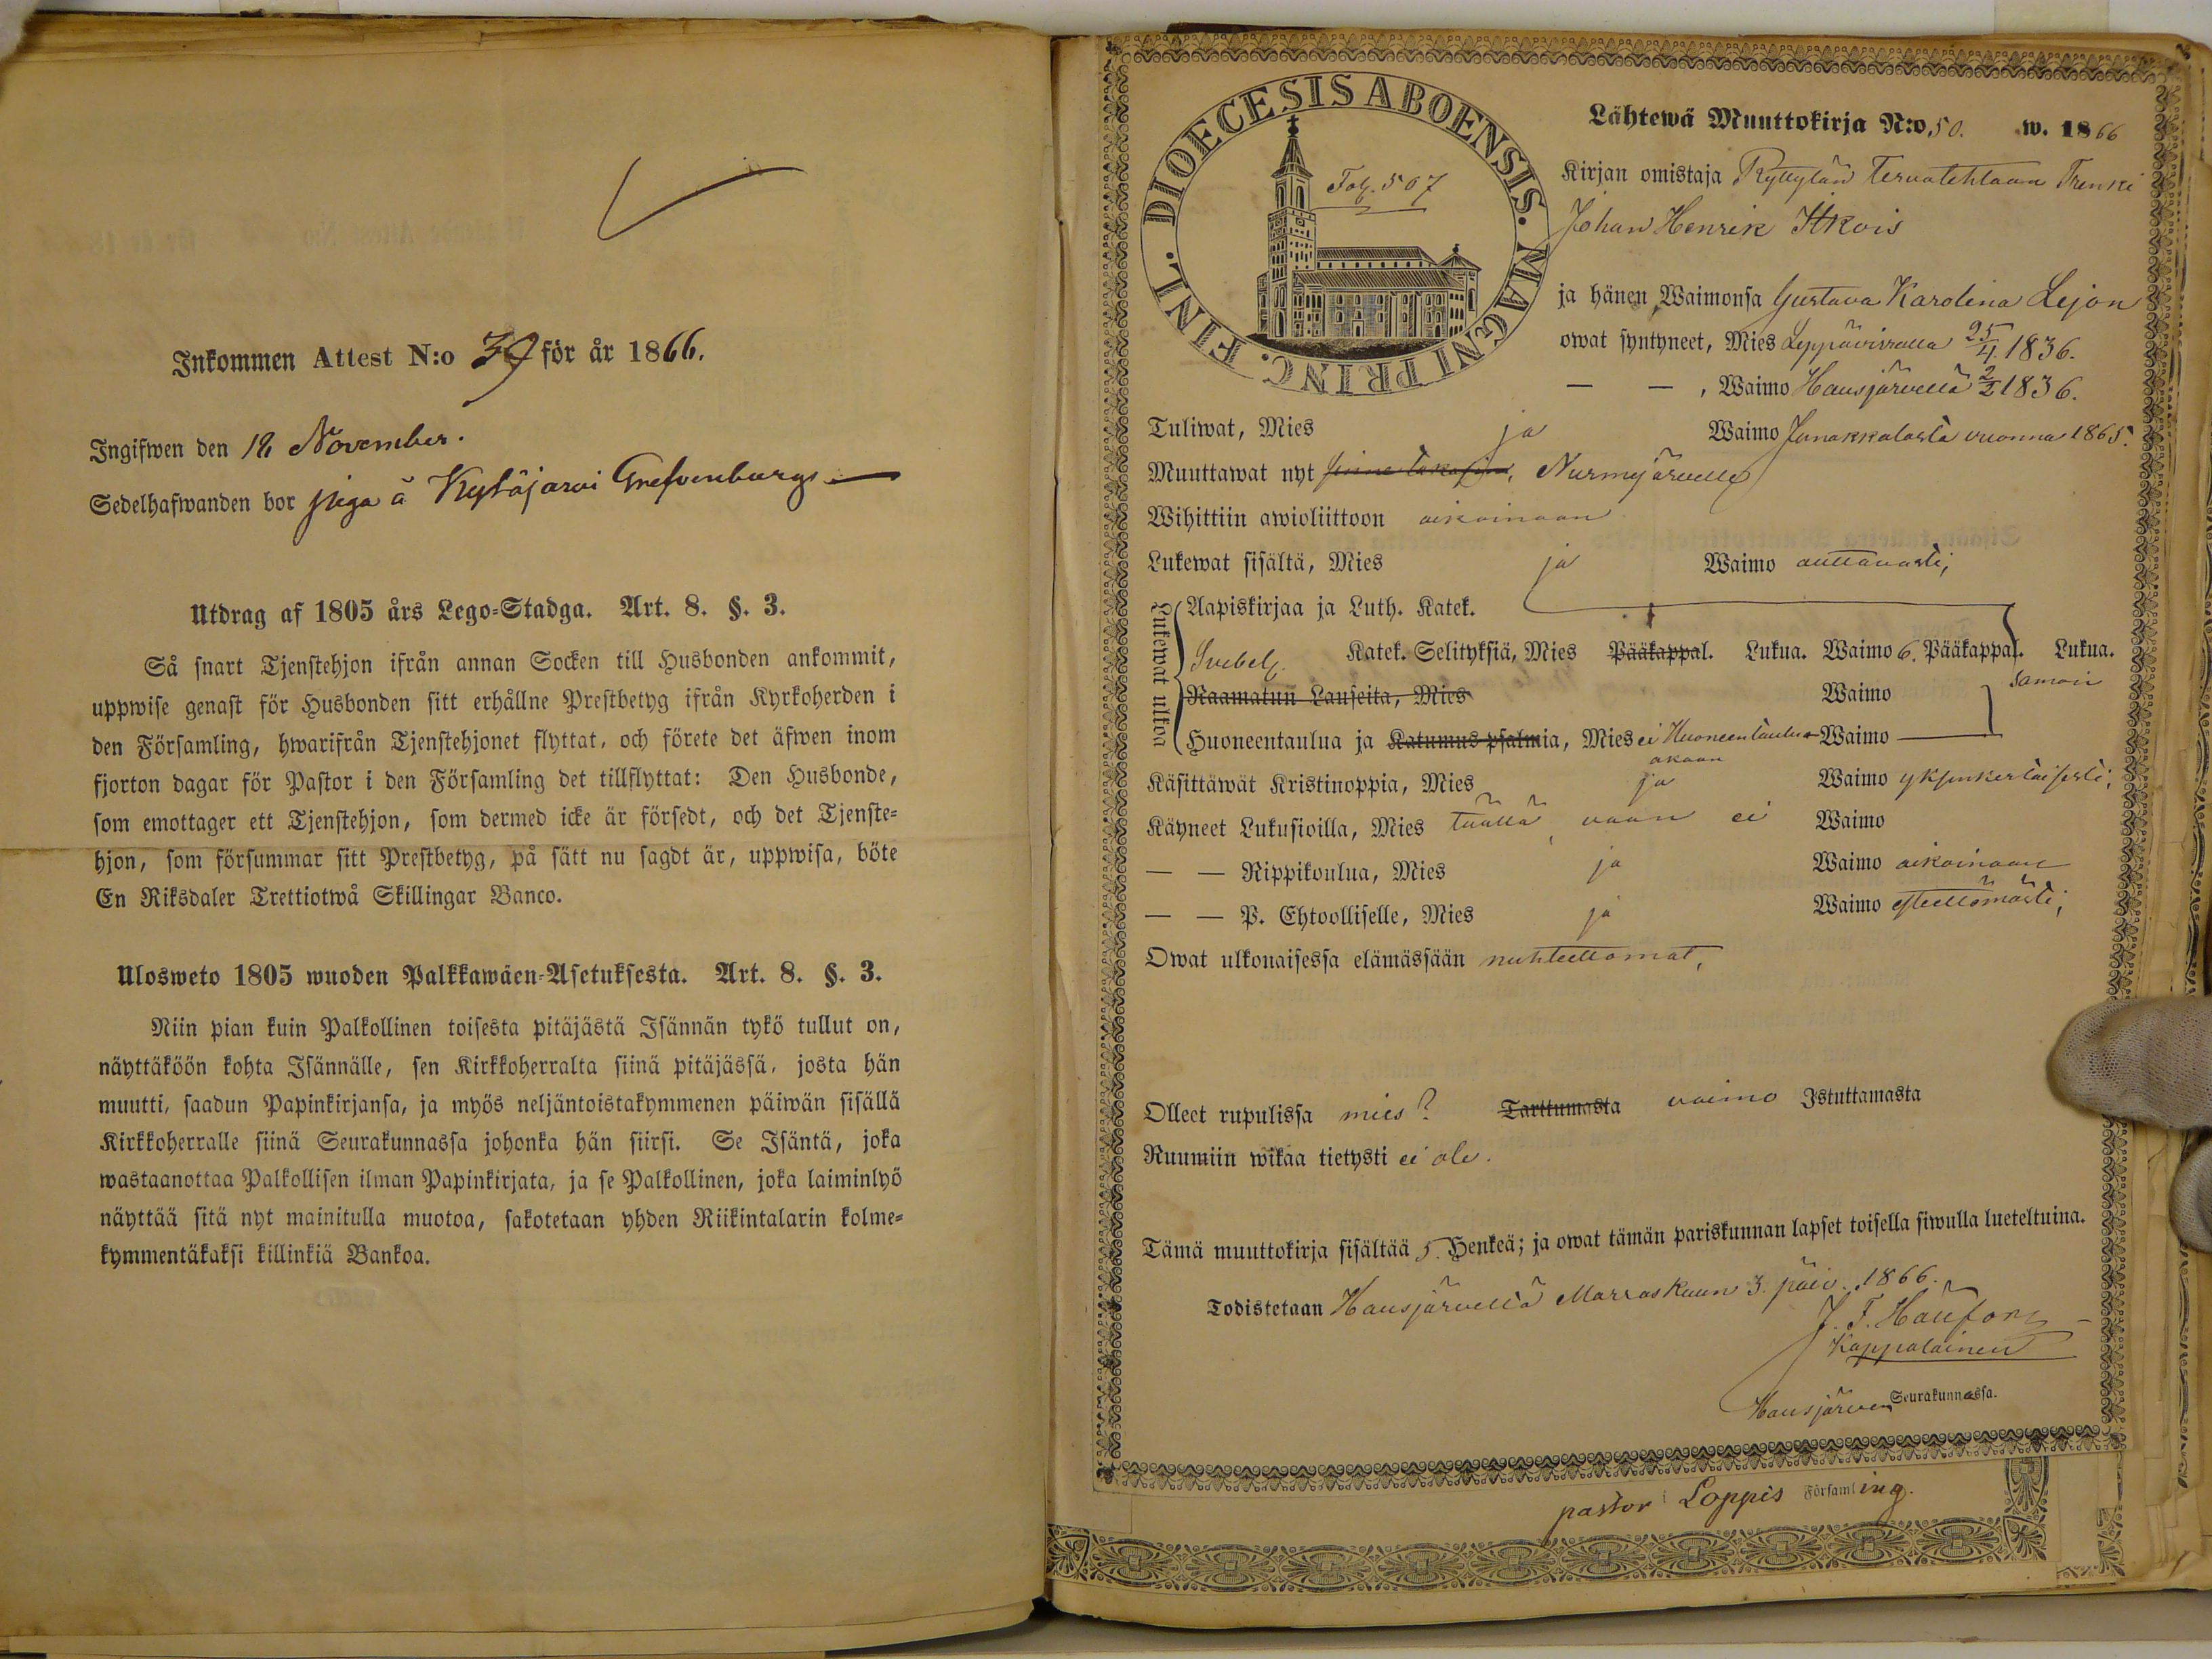 Inkommen Attest N:o 39 för år 1866.
Ingifwen den 18 November.
Sedelhafwanden bor piga å Kytäjärvi Grefvenburgs
Utdrag af 1805 års Lego-Stadga. Art. 8. §. 3.
Så snart Tjenstehjon ifrån annan Socken till Husbonden ankommit,
uppwise genast för Husbonden sitt erhållne Prestbetyg ifrån Kyrkoherden i
den Församling, hwarifrån Tjenstehjonet flyttat, och förete det äfwen inom
fjorton dagar för Pastor i den Församling det tillflyttat: Den Husbonde,
som emottager ett Tjenstehjon, som dermed icke är försedt, och det Tjenste-
hjon, som försummar sitt Prestbetyg, på sätt nu sagdt är, uppwisa, böte
En Riksdaler Trettiotwå Skillingar Banco.
Ulosweto 1805 wuoden Palkkawäen-Asetuksesta. Art. 8. §. 3.
Niin pian kuin Palkollinen toisesta pitäjästä Isännän tykö tullut on,
näyttäköön kohta Isännälle, sen Kirkkoherralta siinä pitäjässä, josta hän
muutti, saadun Papinkirjansa, ja myös neljäntoistakymmenen päiwän sisällä
Kirkkoherralle siinä Seurakunnassa johonka hän siirsi. Se Isäntä, joka
wastaanottaa Palkollisen ilman Papinkirjata, ja se Palkollinen, joka laiminlyö
näyttää sitä nyt mainitulla muotoa, sakotetaan yhden Riikintalarin kolme-
kymmentäkaksi killinkiä Bankoa.
DIOECESIS ABOENSIS. MAGNI PRINC. FINL.
Fol. 507
Lähtewä Muuttokirja N:o 50. w. 1866
Kirjan omistaja Ryttylän Tervatehtaan Trenki
Johan Henrik Itkois
ja hänen Waimonsa Gustava Karolina Lejon
owat syntyneet, Mies Leppävirralla 25/4 1836.
— — , Waimo Hausjärvellä 2/2 1836.
Tuliwat, Mies ja Waimo Janakkalasta vuonna 1865.
Muuttawat nyt Nurmijärvelle
Wihittiin awioliittoon aikoinaan
Lukewat sisältä, Mies ja Waimo auttavasti;
Lukewat ulkoa
Aapiskirjaa ja Luth. Katek.
Svebel. Katek. Selityksiä, Mies Pääkappal. Lukua. Waimo 6. Pääkappal. Lukua.
Raamatun Lauseita, Mies Waimo samoin
Huoneentaulua ja Katumus psalmia, Mies ei Huoneentaulua Waimo
akaan
Käsittäwät Kristinoppia, Mies ja Waimo yksinkertaisesti;
Käyneet Lukusioilla, Mies täällä vaan ei Waimo
— — Rippikoulua, Mies ja Waimo aikoinaan
— — P. Ehtoolliselle, Mies ja Waimo esteettömästi;
Owat ulkonaisessa elämässään nuhteettomat,
Olleet rupulissa mies? Tarttumasta vaimo Istuttamasta
Ruumiin wikaa tietysti ei ole.
Tämä muuttokirja sisältää 5. Henkeä; ja owat tämän pariskunnan lapset toisella siwulla lueteltuina.
Todistetaan Hausjärvellä Marraskuun 3. päiv. 1866.
J. F.
Kappalainen
Hausjärven Seurakunnassa.
pastor i Loppis Församling.